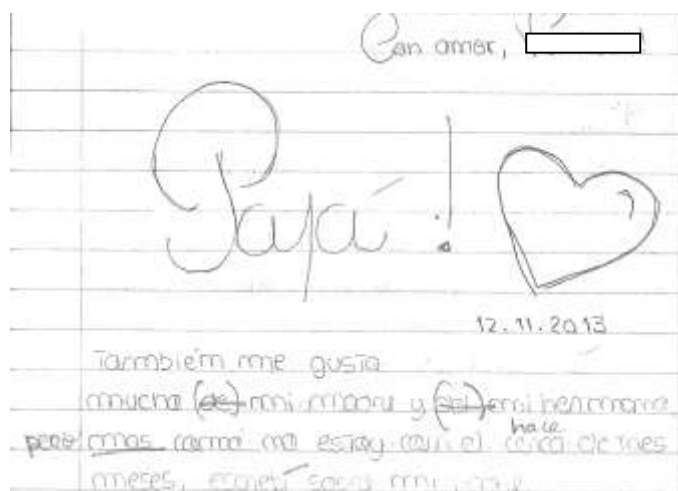 Con amor,
Papá!
12.11.2013
También me gusta
mucho (de) mi madre y (del) mi hermano
hace
pero mas como no estoy con el cerca de tres
meses, escribí sobre mi